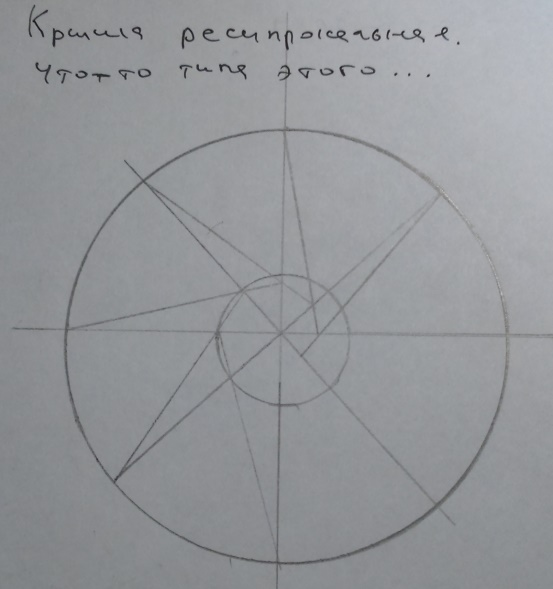 Крыша реципрокальная.
Что-то типа этого...